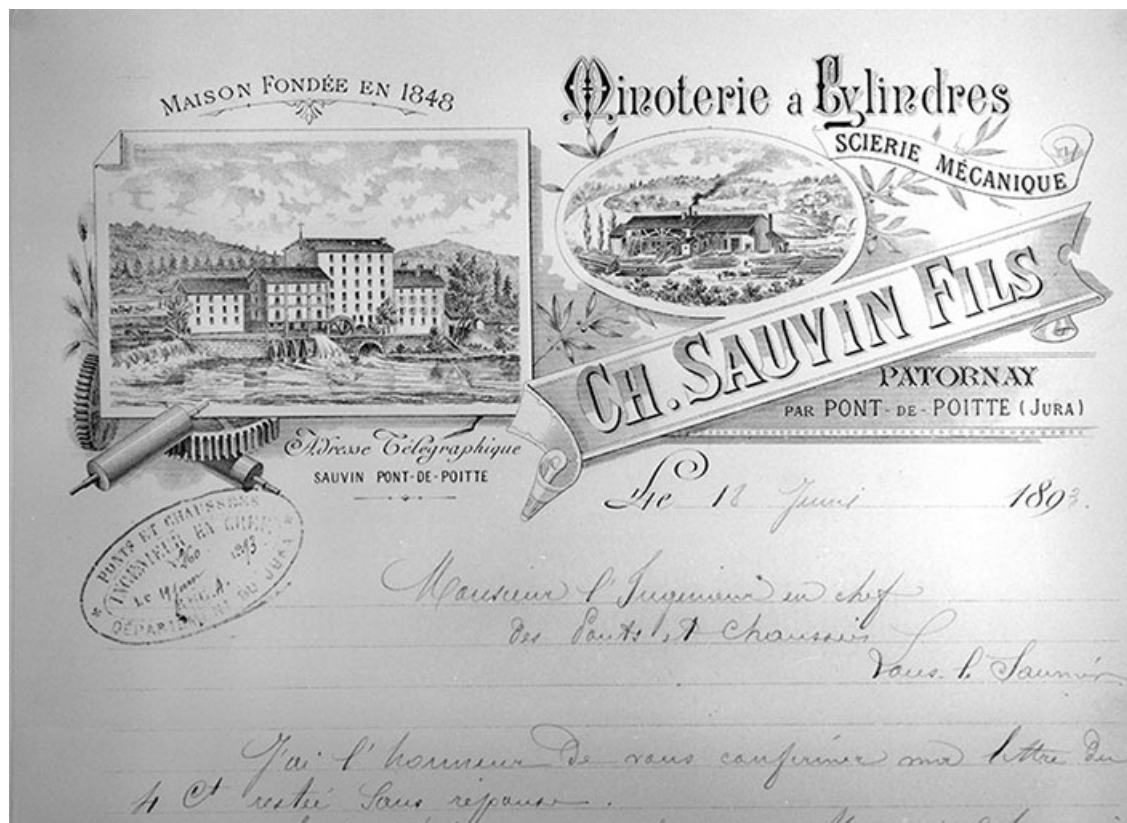 MAISON FONDÉE EN 1848
Minoterie a Cylindres
SCIERIE MÉCANIQUE
CH. SAUVIN FILS
PATORNAY
PAR PONT-DE-POITTE (JURA)
Adresse Télégraphique
SAUVIN PONT-DE-POITTE
Le 18 Juin 1893.
PONTS ET CHAUSSÉES
INGÉNIEUR EN CHEF
LE
DÉPARTEMENT DU JURA
Monsieur l'Ingenieur en chef
des Ponts et Chaussées
Lons-l-Saunier
J'ai l'honneur de vous confirmer ma lettre du
4 Ct restée sans réponse.